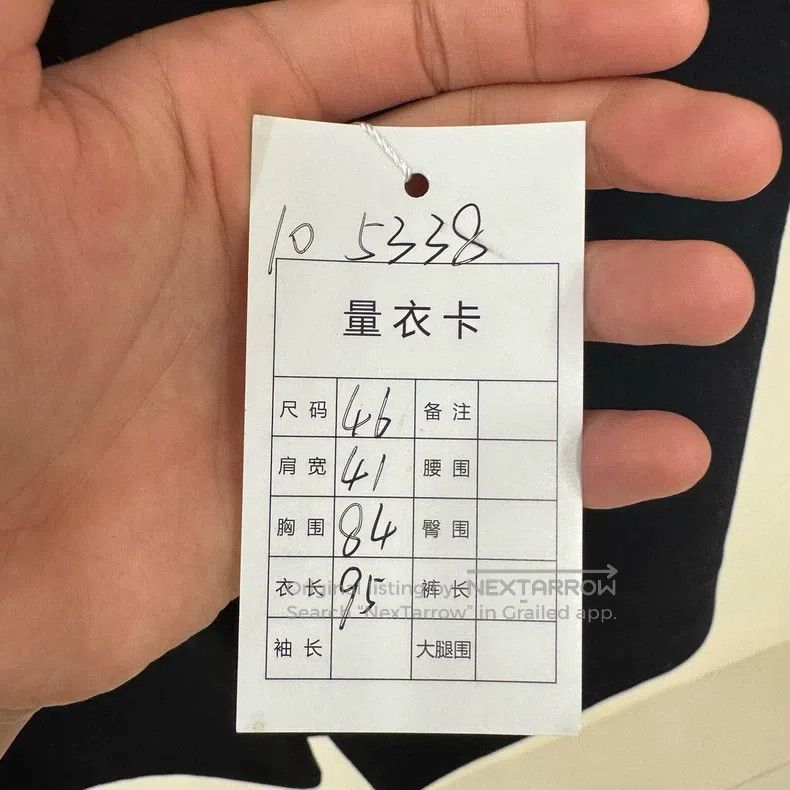 10 5338
量衣卡
尺码 46 备注
肩宽 41 腰围
胸围 84 臀围
衣长 95 裤长
袖长 大腿围
Original listing by NEXTARROW
Search "NexTarrow" in Grailed app.